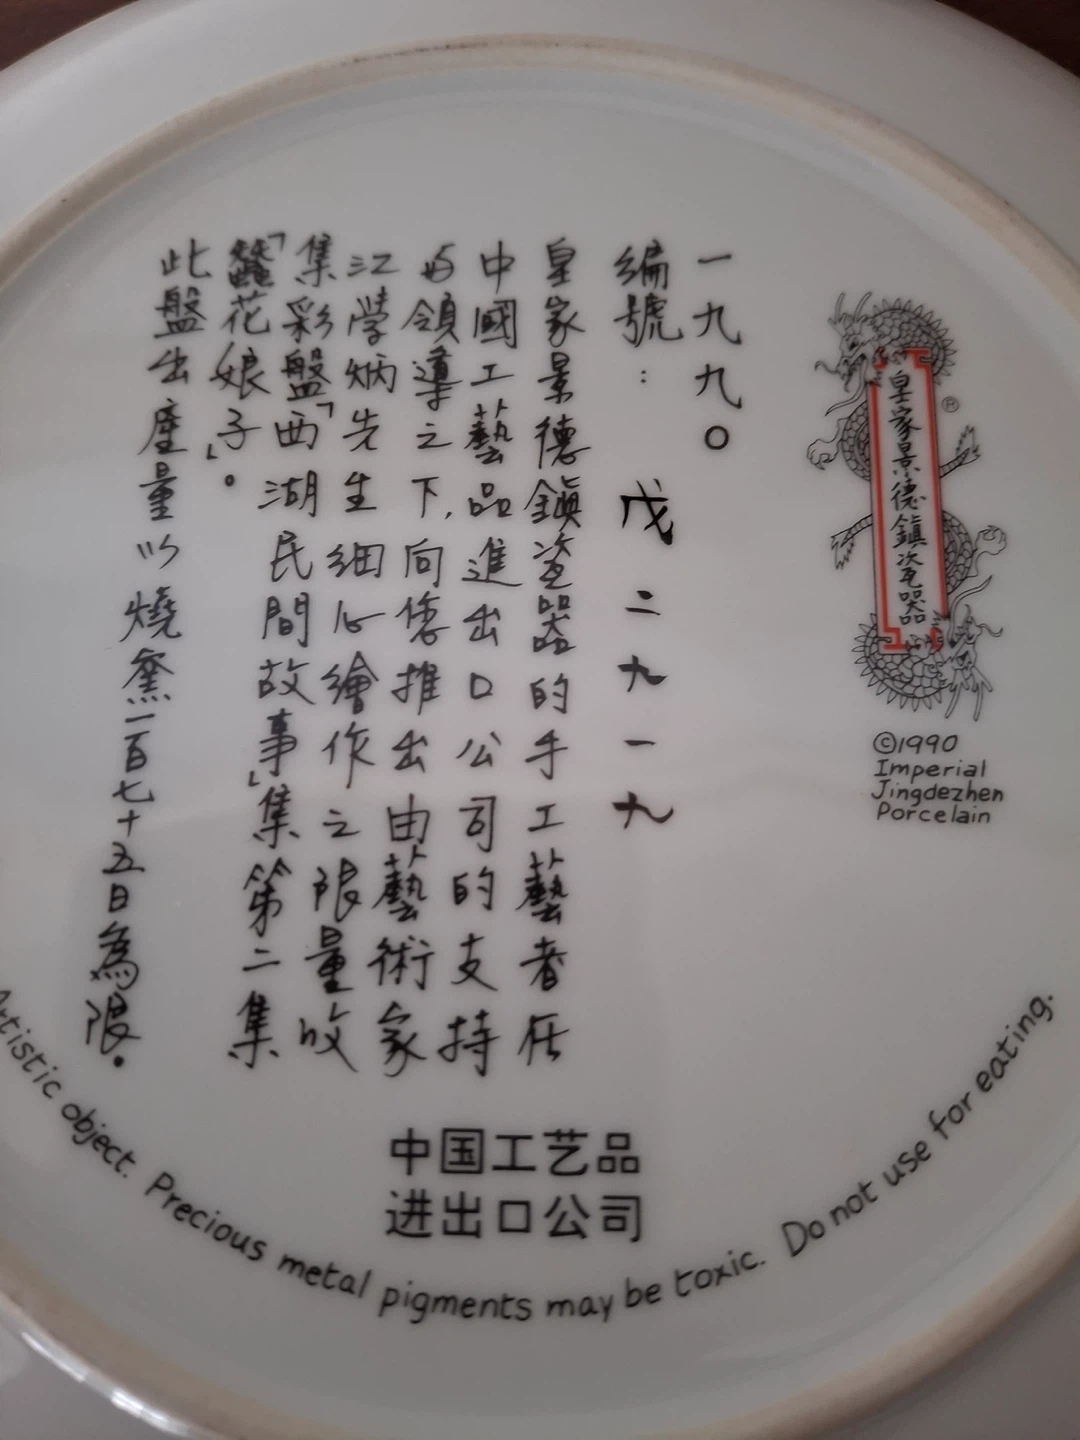 皇家景德鎮瓷器
®
©1990
Imperial
Jingdezhen
Porcelain
一九九〇
編號：戊二九一九
皇家景德鎮瓷器的手工藝者在
中國工藝品進出口公司的支持
与領導之下,向您推出由藝術家
江學炳先生細心繪作之限量收
集彩盤「西湖民間故事」集第二集
「蠶花娘子」。
此盤出産量以燒窯一百七十五日為限。
中国工艺品
进出口公司
Artistic object. Precious metal pigments may be toxic. Do not use for eating.